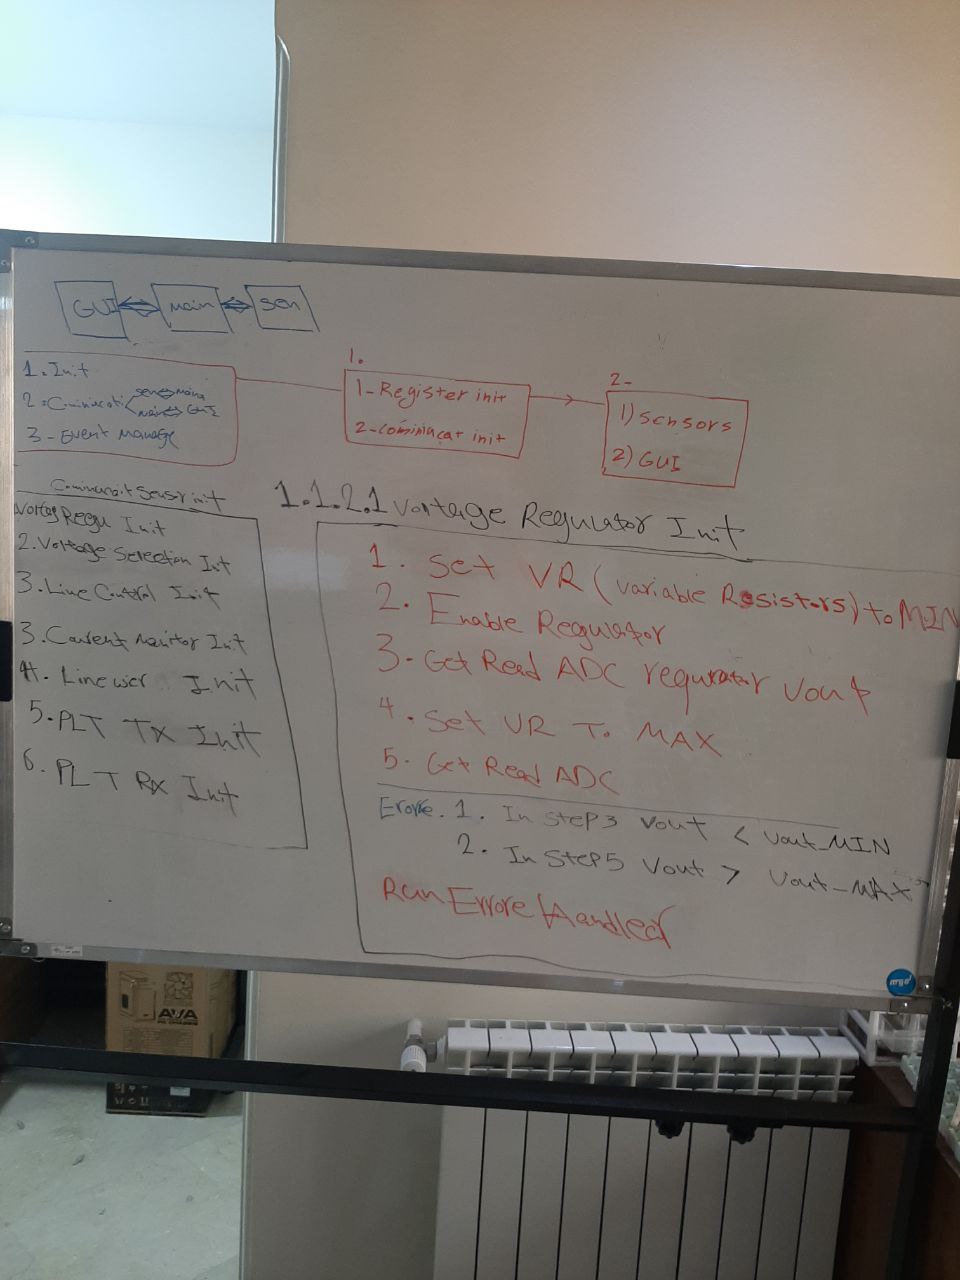 GUI main Sen
1. Init
2. Cominacati sens main
main GUI
3 - Event Manage
1.
1 - Register init
2 - Cominacat init
2 -
1) sensors
2) GUI
Sensor init
Regu Init
2. Voltage Selection Init
3. Line Control Init
3. Current Monitor Init
4. Line Init
5. PLT Tx Init
6. PLT Rx Init
1.1.2.1 Voltage Regulator Init
1. Set VR (Variable Resistors) to MIN
2. Enable Regulator
3. Get Read ADC regurator Vout
4. Set VR To MAX
5. Get Read ADC
Erore. 1. In Step3 Vout < Vout_MIN
2. In Step5 Vout > Vout_MAX
Run Errore Handler
AVA